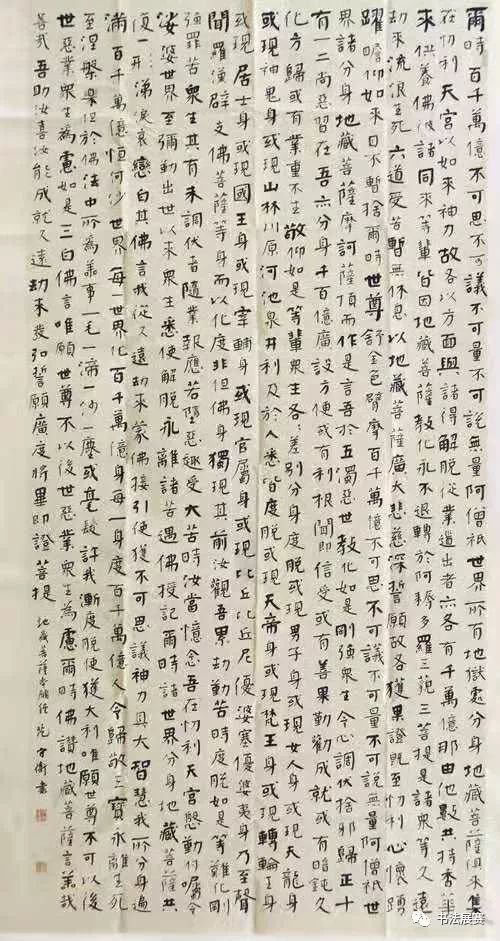 爾時百千萬億不可思不可議不可量不可說無量阿僧祇世界所有地獄處分身地藏菩薩俱來集
在忉利天宮以如來神力故各以方面與諸得解脫從業道出者亦各有千萬億那由他數共持香華
來供養佛彼諸同來等輩皆因地藏菩薩教化永不退轉於阿耨多羅三藐三菩提是諸衆等久遠
劫來流浪生死六道受苦暫無休息以地藏菩薩廣大慈悲深誓願故各獲果證既至忉利心懷踴
躍瞻仰如來目不暫捨爾時世尊舒金色臂摩百千萬億不可思不可議不可量不可說無量阿僧祇世
界諸分身地藏菩薩摩訶薩頂而作是言吾於五濁惡世教化如是剛強衆生令心調伏捨邪歸正十
有一二尚惡習在吾亦分身千百億廣設方便或有利根聞即信受或有善果勤勸成就或有暗鈍久
化方歸或有業重不生敬仰如是等輩衆生各各差別分身度脫或現男子身或現女人身或現天龍身
或現神鬼身或現山林川原河池泉井利及於人悉皆度脫或現天帝身或現梵王身或現轉輪王身
或現居士身或現國王身或現宰輔身或現官屬身或現比丘比丘尼優婆塞優婆夷身乃至聲
聞羅漢辟支佛菩薩等身而以化度非但佛身獨現其前汝觀吾累劫勤苦時度脫如是等難化剛
強罪苦衆生其有未調伏者隨業報應若墮惡趣受大苦時汝當憶念吾在忉利天宮慇勤付囑令
娑婆世界至彌勒出世以來衆生悉使解脫永離諸苦遇佛授記爾時諸世界分身地藏菩薩共
復一形涕淚哀戀白其佛言我從久遠劫來蒙佛接引使獲不可思議神力具大智慧我所分身遍
滿百千萬億恒河沙世界每一世界化百千萬億身每一身度百千萬億人令歸敬三寶永離生死
至涅槃樂但於佛法中所為善事一毛一渧一沙一塵或毫髮許我漸度脫使獲大利唯願世尊不可以後
世惡業衆生為慮如是三白佛言唯願世尊不以後世惡業衆生為慮爾時佛讚地藏菩薩言善哉
善哉吾助汝喜汝能成就久遠劫來發弘誓願廣度將畢即證菩提 地藏菩薩本願經 書
书法展赛